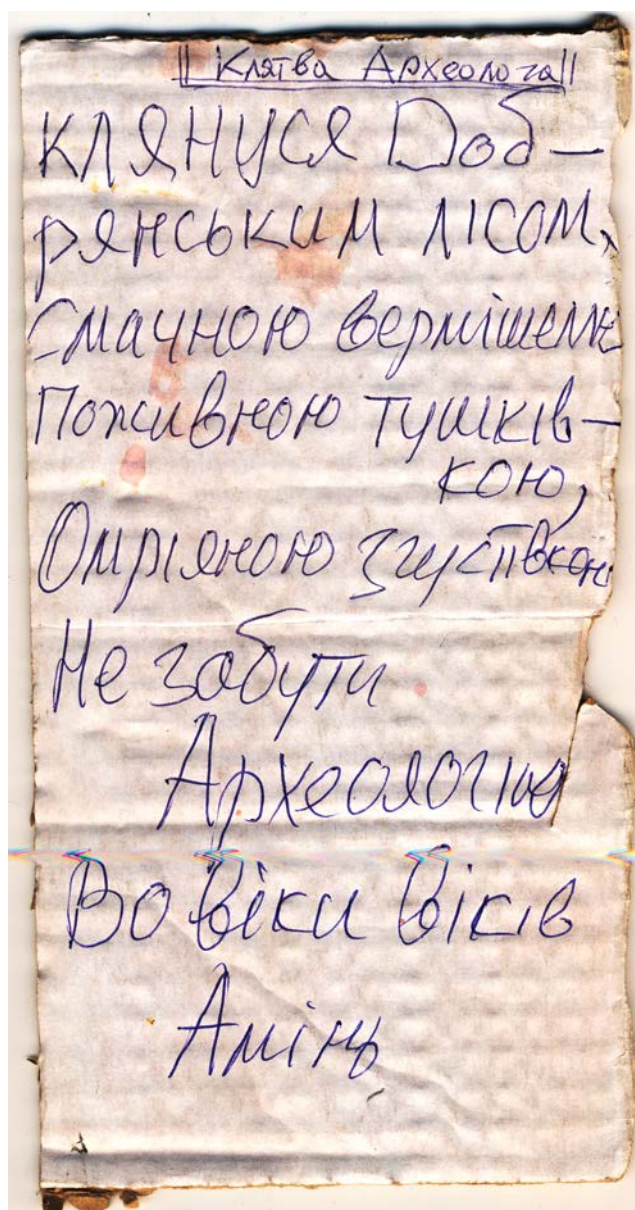 || Клятва Археолога ||
КЛЯНУСЯ Доб-
рянським лісом,
Смачною вермішеллю
Поживною тушків-
кою,
Омріяною згустівкою
Не забути
Археологію
Во віки віків
Амінь